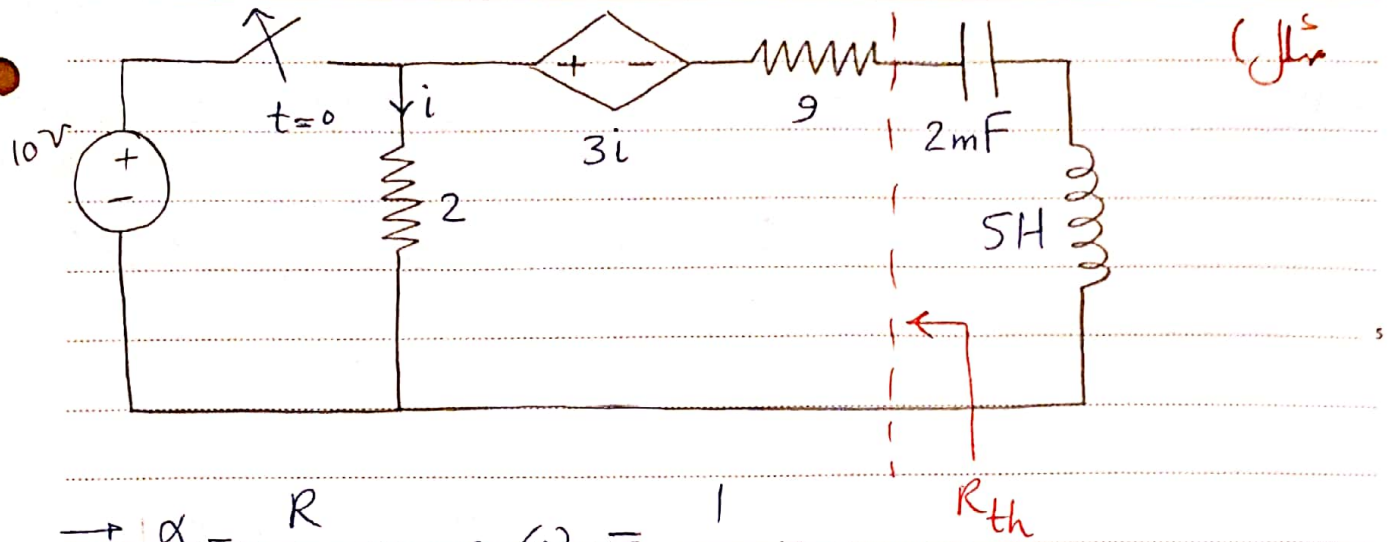 مثال)
10V
+
−
t=0
i
2
+ −
3i
9
2mF
5H
Rth
→ α = R
ω = 1